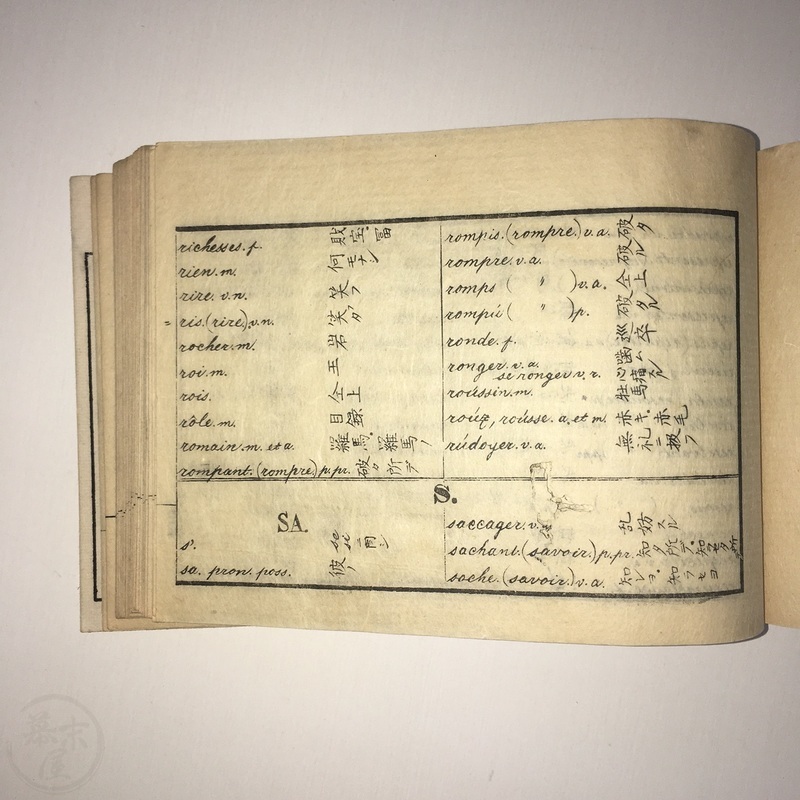 richesses. f. 財宝. 冨
rien. m. 何モナシ
rire. v. n. 笑フ
ris. (rire.) v. n. 笑フタ
rocher. m. 岩
roi. m. 王
rois. 仝上
rôle. m. 目録
romain. m. et a. 羅馬. 羅馬ノ
rompant. (rompre.) p. pr. 破タ所デ
rompis. (rompre.) v. a. 破タ
rompre. v. a. 破ル
romps ( " ) v. a. 仝上
rompu ( " ) p. 破タル
ronde. f. 巡卒
ronger. v. a. 噛ム
se ronger v. r.
roussin. m. 牡馬
roux, rousse. a. et m. 赤キ. 赤毛
rudoyer. v. a. 無礼ニ扱フ
S.
SA.
s'. se si ニ同シ
sa. pron. poss. 彼ノ
saccager. v. 乱妨スル
sachant. (savoir.) p. pr. 知タ所デ.
sache. (savoir.) v. a. 知レヨ. 知フモヨ